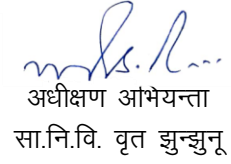 अधीक्षण अभियन्ता
सा.नि.वि. वृत झुन्झुनू